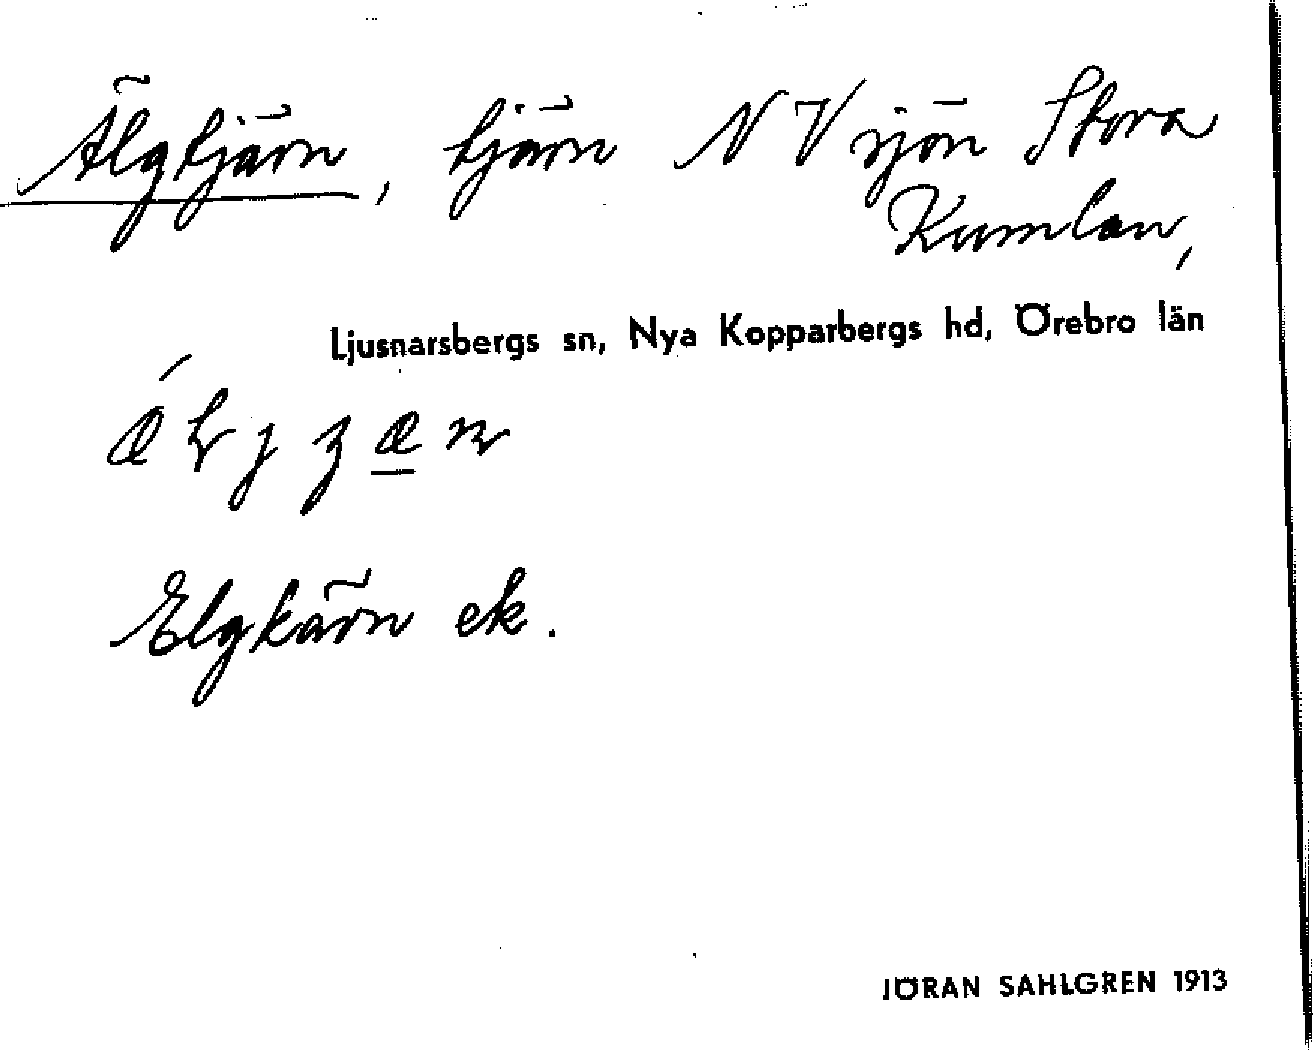 Älgtjärn, tjärn NV sjön Stora
Kumlan,
Ljusnarsbergs sn, Nya Kopparbergs hd, Örebro län
Elgkärn ek.
JÖRAN SAHLGREN 1913